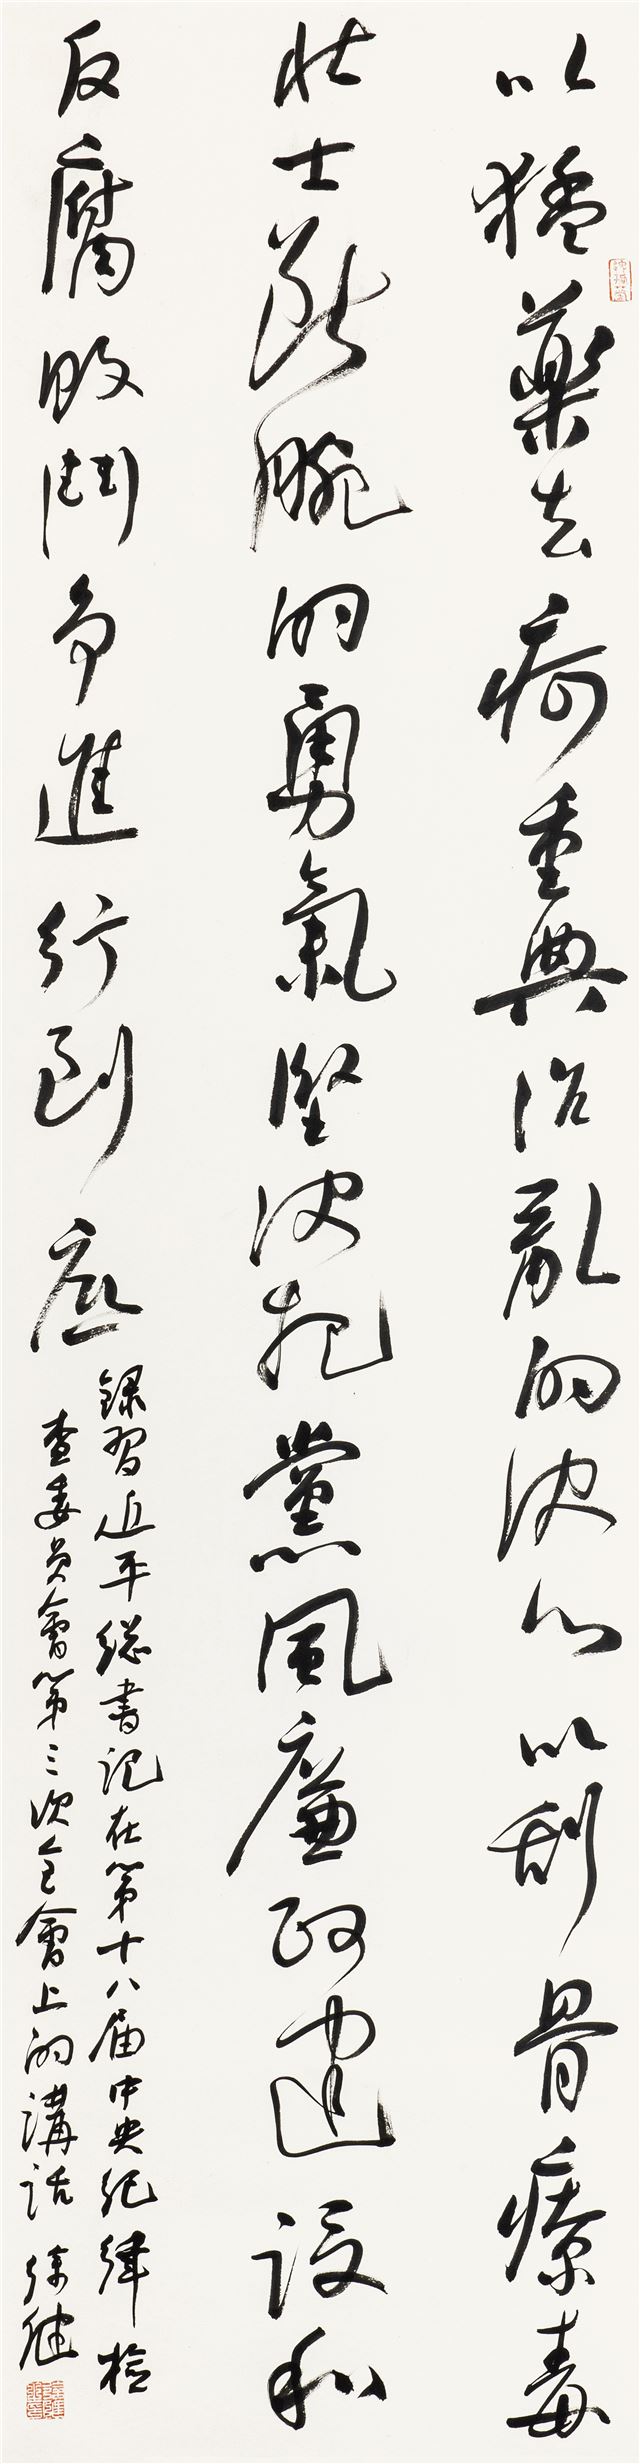 以猛藥去疴重典治亂的決心以刮骨療毒
壯士斷腕的勇氣堅決把黨風廉政建設和
反腐敗鬥争進行到底
錄習近平總書記在第十八届中央紀律檢
查委員會第三次全會上的講話 徐